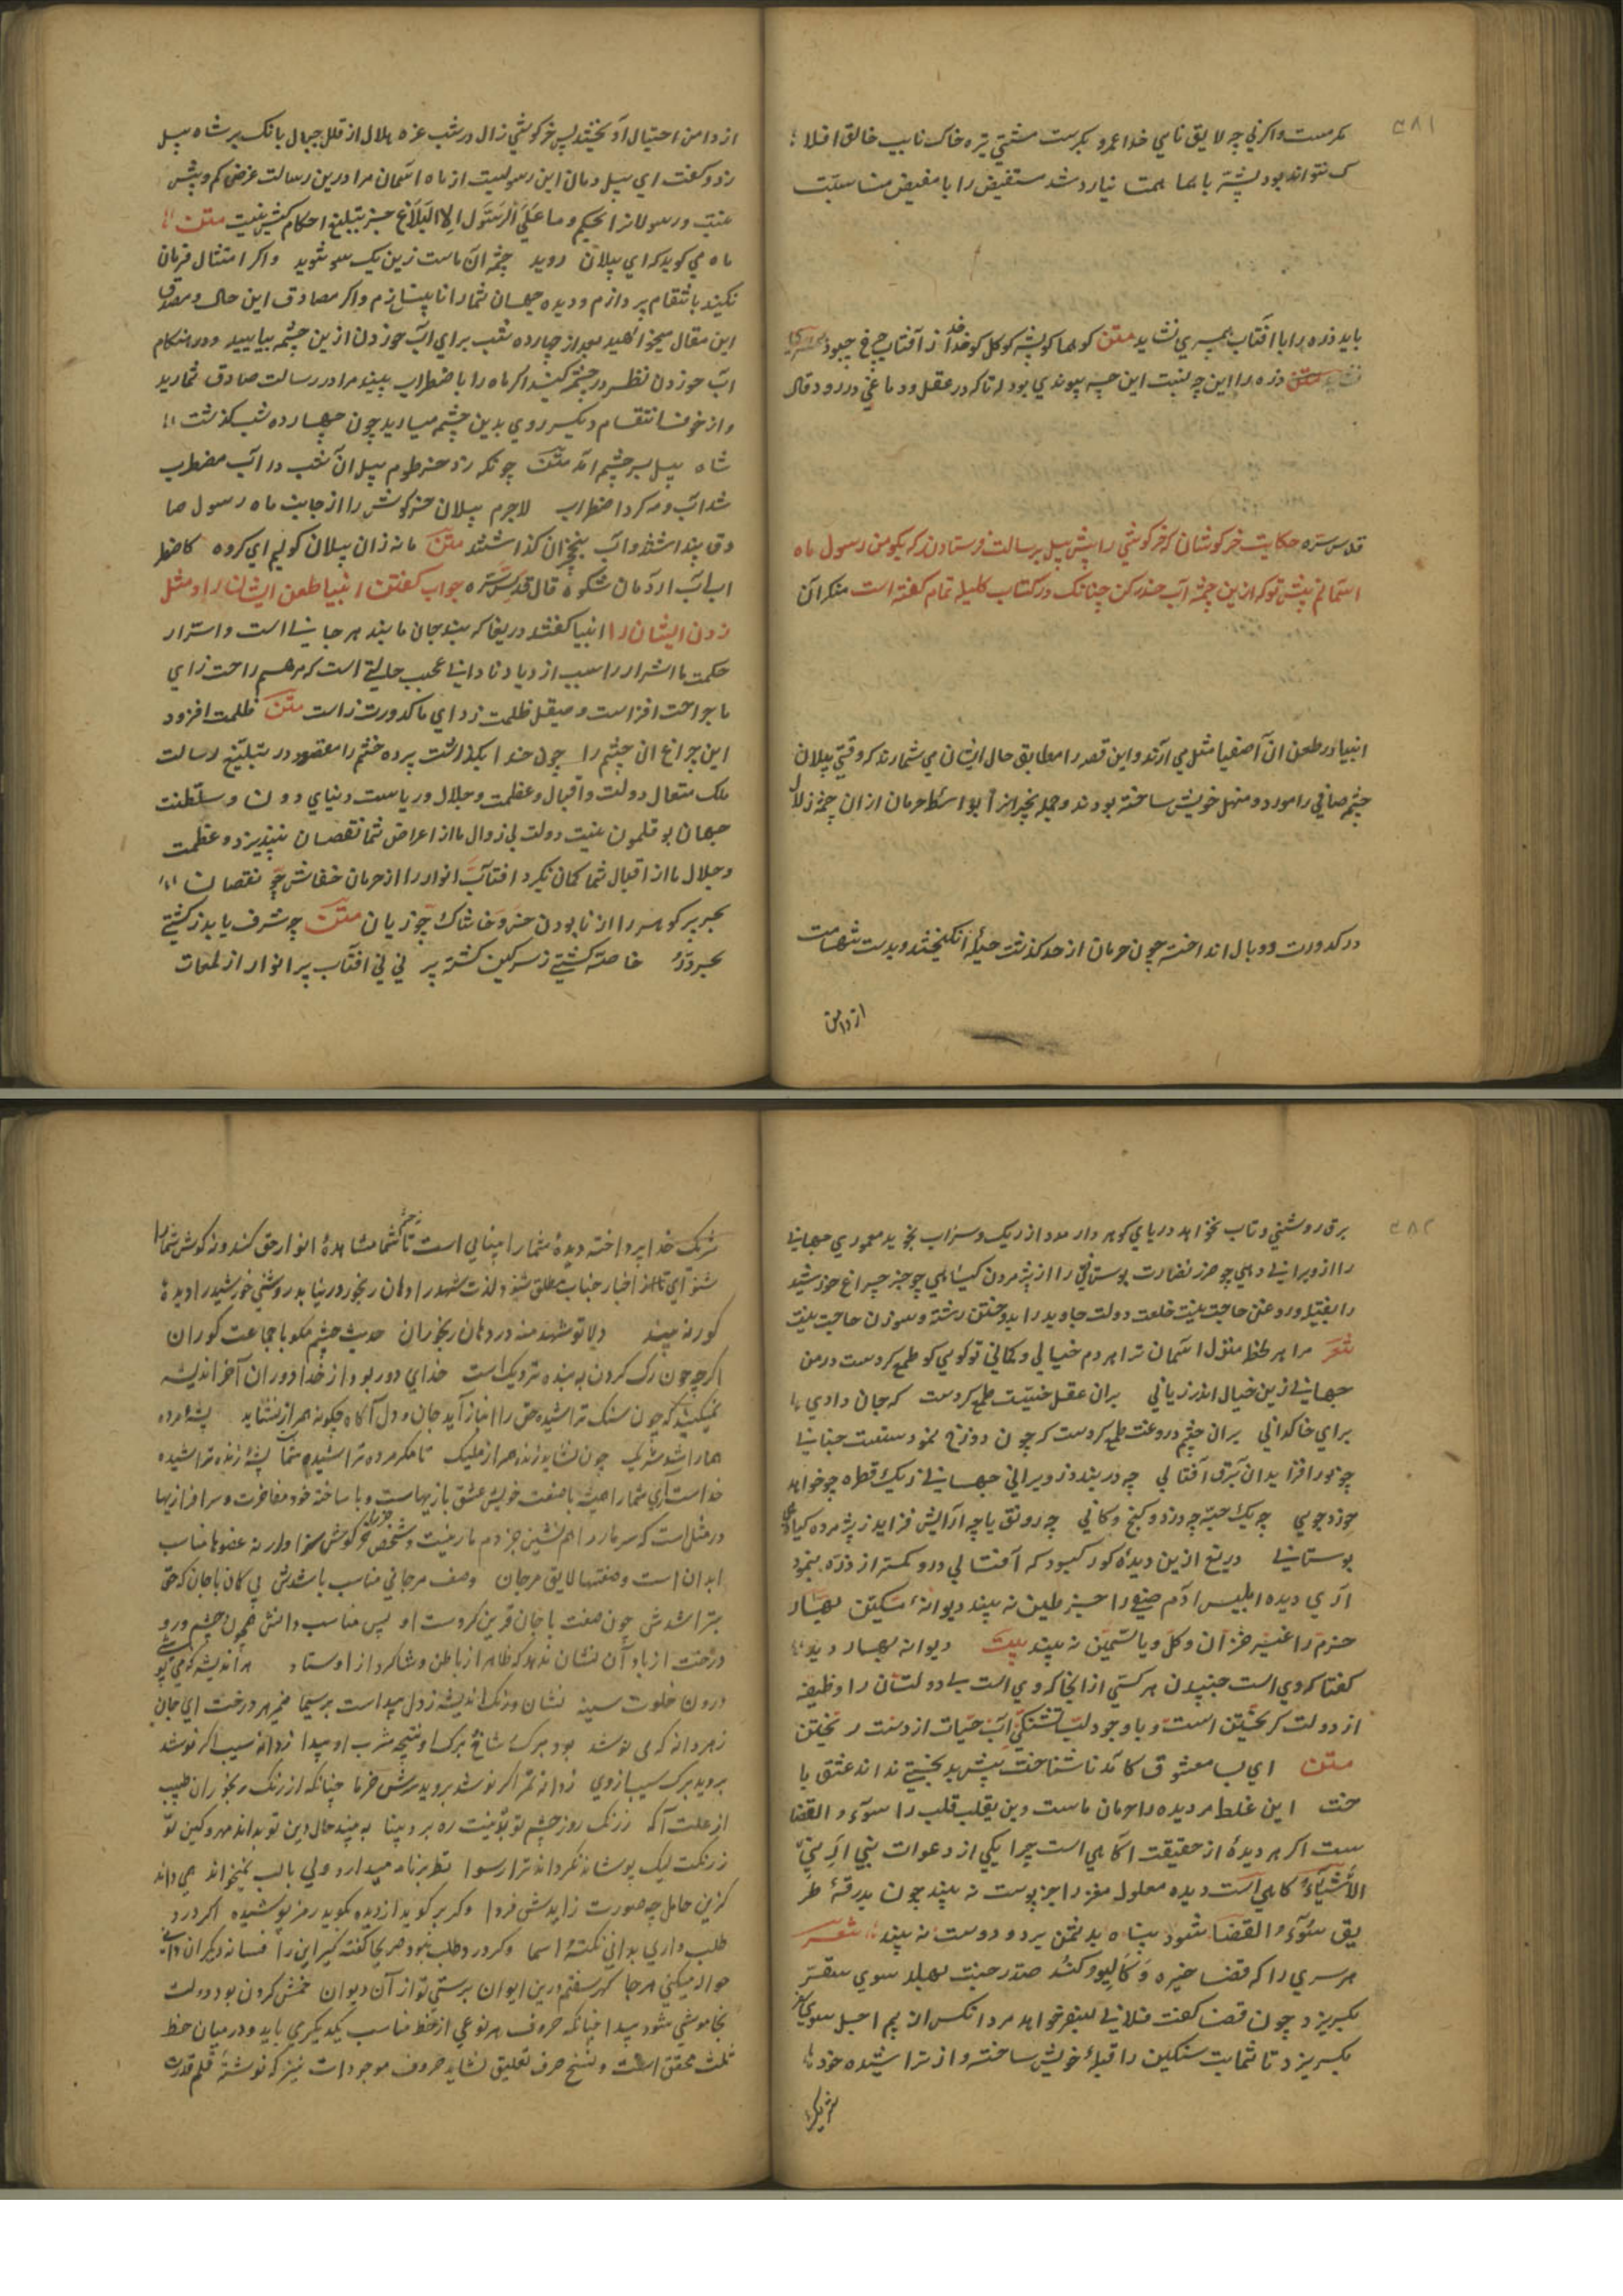 ۳۸۱
مکرست واکرنی چه لایق نامی خدا عمرو بکرست مشتی تیره خاک نایب خالق افلا
ک نتواند بود پشه با هما همت نیارد شد مستفیض را با مفیض مناسبت
باید ذره را با آفتاب همسری نشاید متن کو هما کو پشه کو کل کو خدا ز آفتاب چرخ چبود
متن ذره را این چه نسبت این چه پیوندی بود تا که در عقل و دماغی در رود قال
قدس سره حکایت خرکوشان که خرکوشی را پیش پیل برسالت فرستادند که بکو من رسول ماه
اسمانم پیش تو که ازین چشمه آب حذر کن چنانک در کتاب کلیله تمام کفته است منکران
انبیا در طعن آن آصفیا مثل می آرند و این قصه را مطابق حال ایشان می شمارند که وقتی پیلان
چشم صافی را مورد و منهل خویش ساخته بودند و جمله نخچیران را بواسطه حرمان از ان چشمه زلال
در کدورت و وبال انداخته چون حرمان از حد کذشت حیله انکیختند و بدست شهامت
از دامن
از دامن احتیال آویختند پس خرکوشی زال در شب غره هلال از قلل جبال بانک بر شاه پیل
زد و کفت ای پیل دمان این رسولیست از ماه اسمان مرا درین رسالت غرضی کم و بیش
نیست و رسولانرا بحکم و ما علی الرسول الا البلاغ جز بتبلیغ احکام کیش نیست متن
ماه می کوید که ای پیلان روید چشمه آن ماست زین یک سو شوید و اکر امتثال فرمان
نکنید بانتقام پردازم و دیده جهان شما را نابینا سازم و اکر مصادق این حال و مصدق
این مقال میخواهید بعد از چهارده شب برای آب خوردن ازین چشمه بیایید و در هنکام
آب خوردن نظر در چشمه کنید اکر ماه را باضطراب بینید مرا در رسالت صادق شمارید
و از خوف انتقام دیکر روی بدین چشمه میارید چون چهارده شب کذشت
شاه پیل بسر چشمه آمد متن چونکه زد خرطوم پیل آن شب در آب مضطرب
شد آب و مه کرد اضطراب لاجرم پیلان خرکوش را از جانب ماه رسول صا
دق پنداشتند و آب بنخچیران کذاشتند متن ما نه زان پیلان کولیم ای کروه کاضطر
اب آب آردمان شکوه قال قدس سره جواب کفتن انبیا طعن ایشان را و مثل
زدن ایشان را انبیا کفتند دریغا که پند جان ما بند هر جانی است و اسرار
حکمت ما اشرار را سبب ازدیاد نادانی عجب حالتی است که مرهم راحت زای
ما جراحت افزاست و صیقل ظلمت زدای ما کدورت زاست متن ظلمت افزود
این چراغ آن چشم را چون خدا بکماشت پرده خشم را مقصود در تبلیغ رسالت
ملک متعال دولت و اقبال و عظمت و جلال و ریاست دنیای دون و سلطنت
جهان بوقلمون نیست دولت بی زوال ما از اعراض شما نقصان نپذیرد و عظمت
و جلال ما از اقبال شما کمان نکیرد آفتاب انوار را از حرمان خفاش چه نقصان
بحر پر کوهر را از نابودن خس و خاشاک چه زیان متن چه شرف یابد ز کشتی
بحر در خاصه کشتی ز سرکین کشته پر نی نی آفتاب پر انوار از لمعات
۳۸۲
برق روشنی و تاب نخواهد دریای کوهردار مدد از ریک و سراب نجوید معموری جهانی
را از ویرانی دهی چه ضرر نضارت بوستانی را از پژمردن کیاهی چه خبر چراغ خورشید
را بفتیله و روغن حاجت نیست خلعت دولت جاوید را بدوختن رشته و سوزن حاجت نیست
شعر مرا هر لحظه منزل اسمان ترا هر دم خیالی و کمانی تو کوی کو طمع کردست در من
جهانی زین خیال اندر زیانی بران عقل خنیت طمع کردست که جان دادی
برای خاکدانی بران چشم دروغت طمع کردست که چون دوزخ نمودستت جنانی
چه نور افزاید ان برق آفتابی چه در بندد ز ویرانی جهانی ز یک قطره چه خواهد
خورد جوی چه یک حبه چه دزدد کنج و کانی چه رونق یا چه آرایش فزاید ز پژمرده کیاهی
بوستانی دریغ ازین دیده کور کبود که آفتابی در و کمتر از ذره بنمود
آری دیده ابلیس از آدم صفی را جز طین نه بیند دیوانه سکین بهار
خرم را غیر خزان و کل و یاسمین نه بیند بیت دیوانه بهار دید
کفتا که دی است جنبیدن هر کسی از انجا که وی است بی دولتان را وظیفه
از دولت کریختن است و باوجود لب تشنکی آب حیات از دست ریختن
متن ای بسا معشوق کامد ناشناخت پیش بدبختی نداند عشق با
خت این غلط مر دیده را حرمان ماست وین یقلب قلب را سوء القضا
ست اکر هر دیده از حقیقت آکاهی است چرا یکی از دعوات نبی ارنی
الاشیاء کماهی است دیده معلول مغز را جز پوست نه بیند چون بدرقه طر
یق سوء القضا شود پناه بدشمن برد و دوست نه بیند شعر
هر سری را که قضا خیره و کالیوه کند صدر جنت بهلد سوی سقر
بکریزد چون قضا کفت فلانی بسفر خواهد مرد آنکس از بیم اجل سوی سفر
بکریزد تا شما بت سنکین را قبله خویش ساخته و از تراشیده خود
شریک
شرک خدا پرداخته دیده شما را بینایی است تا شما مشاهده انوار حق کند و ز کوش شما را
شنوای تا از اخبار جناب مطلق شنود لذت شهد را دهان رنجور درنیابد روشنی خورشید را دیده
کور نه بیند دلا تو شهد منه در دهان رنجوران حدیث چشم مکو با جماعت کوران
اکرچه چون رک کردن به بنده نزدیک است خدای دور بود از خدا دوران آخر اندیشه
نمیکنید که چون سنک تراشیده حق را انباز آید جان و دل آکاه چکونه همراز نشاید پشه مرده
هما را شد شریک چون نشاید زنده همراز ملیک تا مکر مرده تراشیده شما پشه زنده تراشیده
خداست آری شما را همیشه با صنعت خویش عشق بازیهاست و با ساخته خود مفاخرت و سرافرازیها
در مثل است که سر مار را هم نشین جز دم مار نیست و شخص خرکوش سزاوار نه عضوها مناسب
ابدان است و صفتها لایق مرجان وصف هر جانی مناسب باشدش بی کمان با جان که حق
بتراشدش چون صفت با جان قرین کردست او پس مناسب دانش همچون چشم و رو
درخت از باد آن نشان ندهد که ظاهر از باطن و شاکرد از اوستاد هر اندیشه که می پوشی
درون خلوت سینه نشان و رنک اندیشه ز دل پیداست بر سیما ضمیر هر درخت ای جان
ز هر دانه که می نوشد بود بر برک شاخ و برک او نتیجه شرب او پیدا ز دانه سیب اکر نوشد
بروید برک سیب از وی ز دانه تمر اکر نوشد بروید بر سرش خرما چنانکه از رنک رنجوران طبیب
از علت آکه ز رنک روز چشم تو به دینت ره برد بینا به بیند حال دین تو بداند مهر و کین تو
ز رنکت لیک پوشاند نکرداند ترا رسوا نظر بر نامه میدارد ولی با لب نمیخواند همی داند
کزین حامل چه صورت زایدش فردا و کر بر کوید از دیده بکوید رمز پوشیده اکر درد
طلب داری بدانی نکته اسما و کر درد طلب نبود صریحا کفته کیر این را فسانه دیکران دانی
حواله میکنی هر جا کهر سفتم درین ایوان برستی تو از آن دیوان خمش کردن بود دولت
بخاموشی شود پیدا چنانکه حروف هر نوعی از خط مناسب یکدیکر می باید و در میان خط
ثلث محقق است و نسخ حرف تعلیق نشاید حروف موجودات نیز که نوشته قلم قدرت